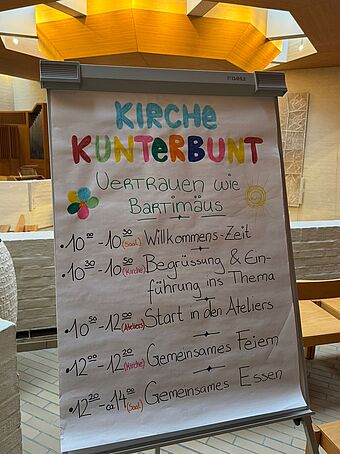 KIRCHE
KUNTERBUNT
Vertrauen wie
Bartimäus
• 10⁰⁰ - 10³⁰ (Saal) Willkommens-Zeit
• 10³⁰ - 10⁵⁰ (Kirche) Begrüssung & Ein-
führung ins Thema
• 10⁵⁰ - 12⁰⁰ (Ateliers) Start in den Ateliers
• 12⁰⁰ - 12²⁰ (Kirche) Gemeinsames Feiern
• 12²⁰ - ca 14⁰⁰ (Saal) Gemeinsames Essen